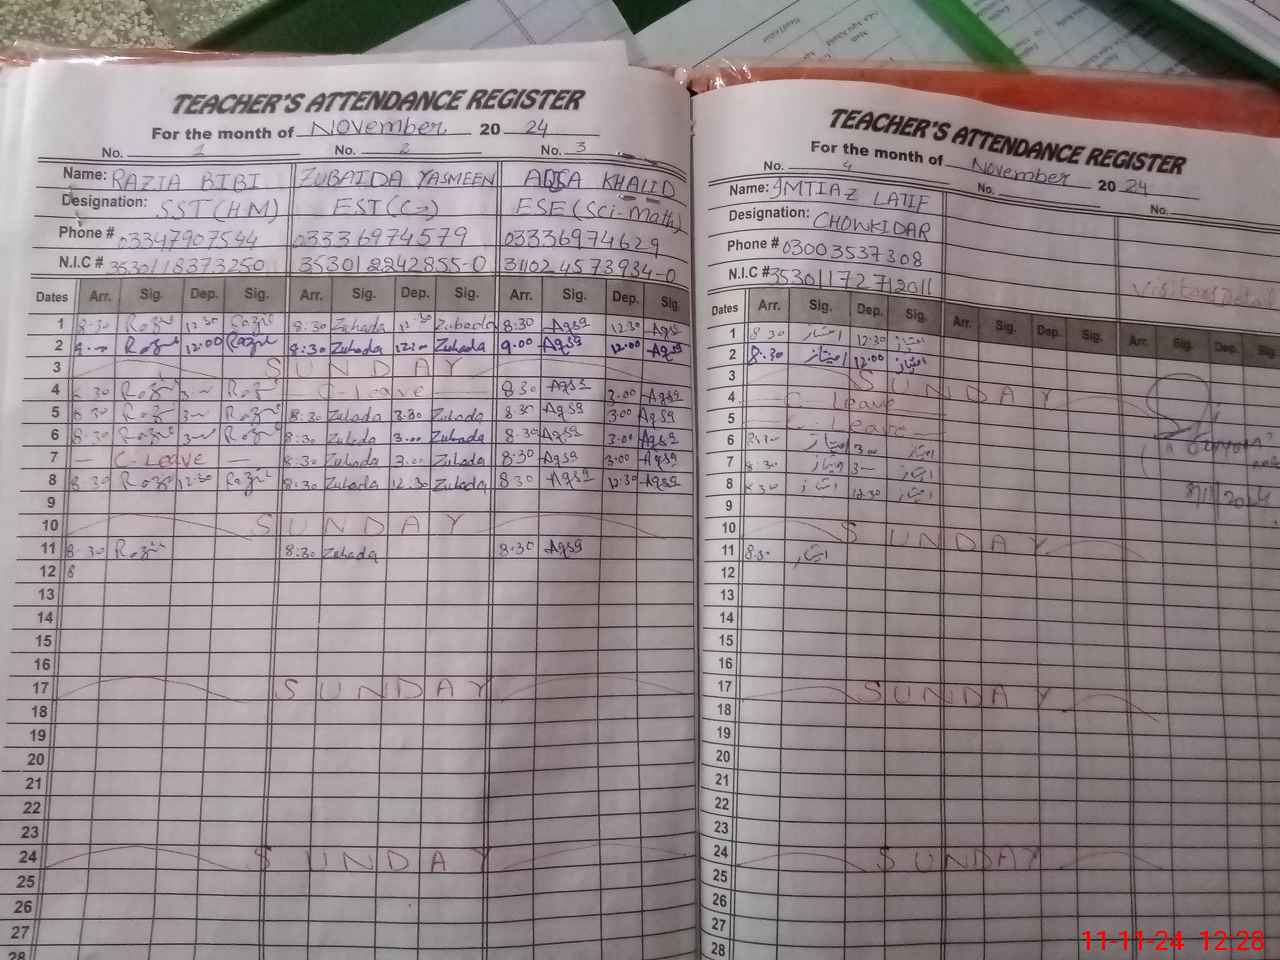 TEACHER'S ATTENDANCE REGISTER
For the month of November 20 24
No. 1 No. 2 No. 3
Name: RAZIA BIBI ZUBAIDA YASMEEN AQSA KHALID
Designation: SST(HM) EST( ESE(Sci-Math)
Phone # 03336974579 03336974629
N.I.C # 3530118373250 353012242855-0 311024573934-0
Dates Arr. Sig. Dep. Sig. Arr. Sig. Dep. Sig. Arr. Sig. Dep. Sig.
1 8:30 12:30 8:30 Zubada 12:30 Zubada 8:30 Aqsa 12:30 Aqsa
2 9:00 12:00 8:30 Zubada 12:00 Zubada 9.00 Aqsa 12:00 Aqsa
3 SUNDAY
4 8:30 3:00 C-Leave 8:30 Aqsa 3.00 Aqsa
5 8:30 3:00 8:30 Zubada 3.00 Zubada 8:30 Aqsa 3:00 Aqsa
6 8:30 3:00 8:30 Zubada 3.00 Zubada 8:30 Aqsa 3:00 Aqsa
7 — C-Leave — 8:30 Zubada 3.00 Zubada 8:30 Aqsa 3:00 Aqsa
8 8:30 12:30 8:30 Zubada 12:30 Zubada 8:30 Aqsa 12:30 Aqsa
9
10 SUNDAY
11 8:30 8:30 Zubada 8:30 Aqsa
12 8
13
14
15
16
17 SUNDAY
18
19
20
21
22
23
24 SUNDAY
25
26
27
28
TEACHER'S ATTENDANCE REGISTER
For the month of November 20 24
No. 4 No. No.
Name: IMTIAZ LATIF
Designation: CHOWKIDAR
Phone # 03003537308
N.I.C # 35301172712011
Visitors Detail
Dates Arr. Sig. Dep. Sig. Arr. Sig. Dep. Sig. Arr. Sig. Dep. Sig.
1 8:30 امتیاز 12:30 امتیاز
2 8:30 امتیاز 12:00 امتیاز
3 SUNDAY
4 — C-Leave —
5 — C-Leave —
6 8:30 امتیاز 3:00 امتیاز
7 8:30 امتیاز 3:00 امتیاز
8 8:30 امتیاز 12:30 امتیاز
9
10 SUNDAY
11 8:30 امتیاز
12
13
14
15
16
17 SUNDAY
18
19
20
21
22
23
24 SUNDAY
25
26
27
28
11-11-24 12:28